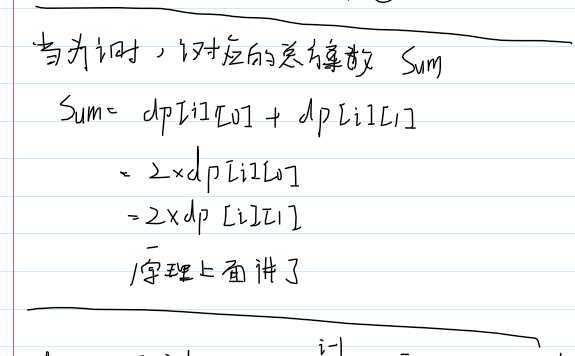 当为i时，i对应的总穗数 Sum
Sum= dp[i][0] + dp[i][1]
= 2×dp[i][0]
=2×dp [i][1]
原理上面讲了
i-1